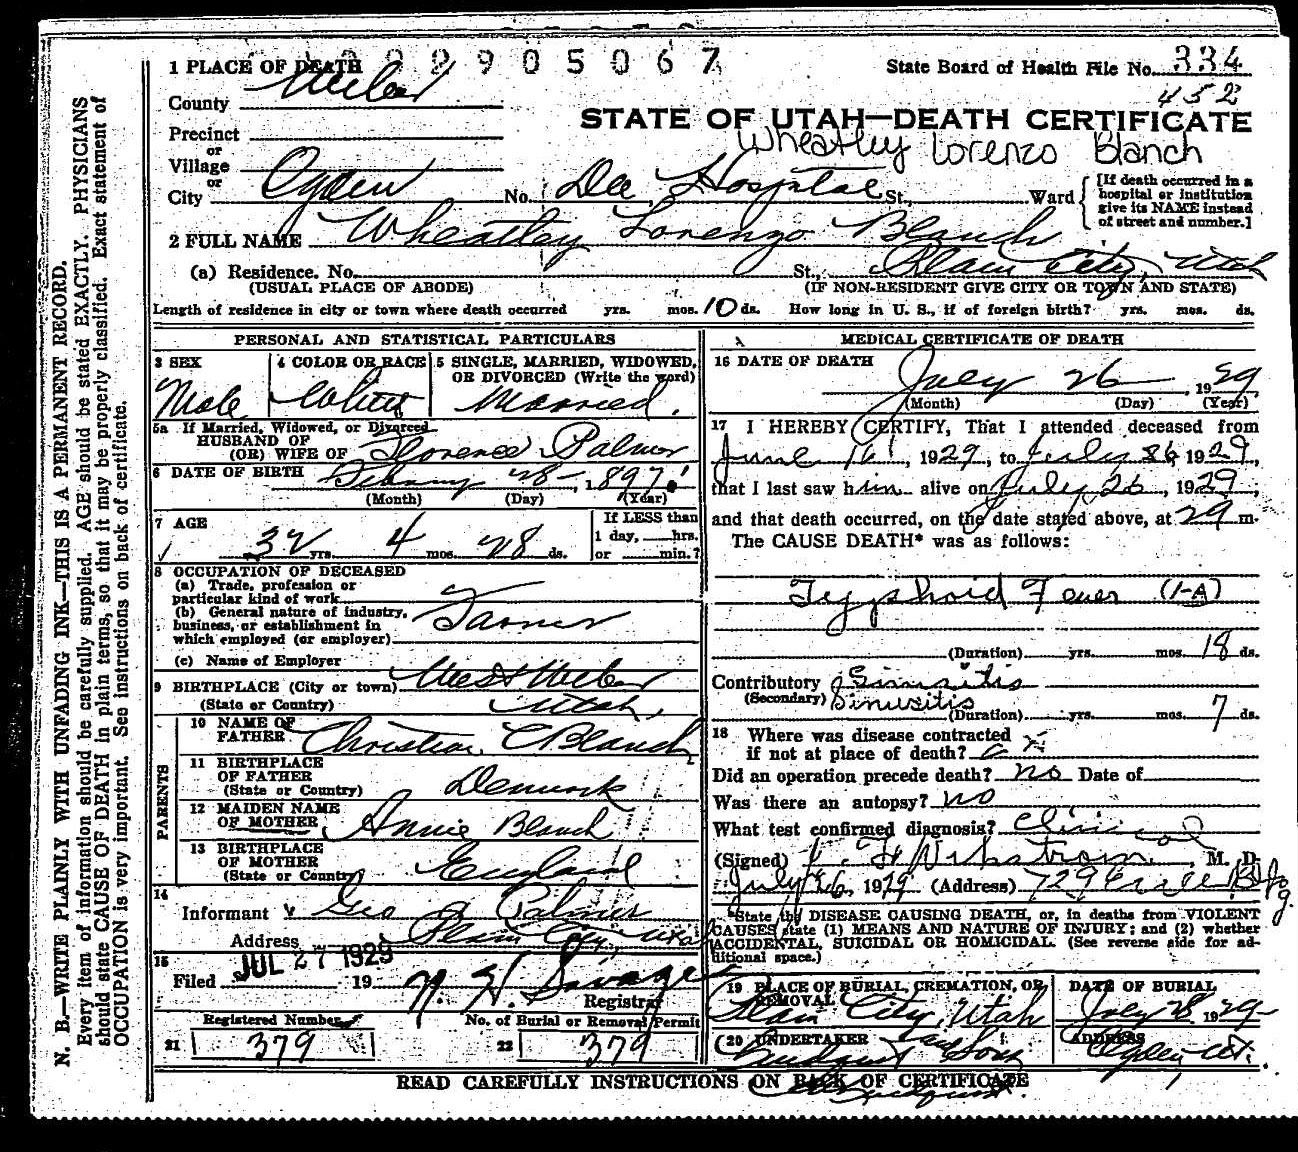 222905067
1 PLACE OF DEATH
State Board of Health File No. 334
452
County Weber
STATE OF UTAH—DEATH CERTIFICATE
Precinct
or
Wheatley Lorenzo Blanch
Village
or
City Ogden No. Dee Hospital St., Ward
[If death occurred in a
hospital or institution
give its NAME instead
of street and number.]
2 FULL NAME Wheatley Lorenzo Blanch
(a) Residence. No. St., Plain City, Utah
(USUAL PLACE OF ABODE) (IF NON-RESIDENT GIVE CITY OR TOWN AND STATE)
Length of residence in city or town where death occurred yrs. mos. 10 ds. How long in U. S., if of foreign birth? yrs. mos. ds.
PERSONAL AND STATISTICAL PARTICULARS
3 SEX
Male
4 COLOR OR RACE
White
5 SINGLE, MARRIED, WIDOWED,
OR DIVORCED (Write the word)
Married.
5a If Married, Widowed, or Divorced
HUSBAND OF
(OR) WIFE OF Florence Palmer
6 DATE OF BIRTH 28, 1897
(Month) (Day) (Year)
7 AGE
32 yrs. 4 mos. 28 ds.
If LESS than
1 day, hrs.
or min.?
8 OCCUPATION OF DECEASED
(a) Trade, profession or
particular kind of work
(b) General nature of industry,
business, or establishment in
which employed (or employer)
Farmer
(c) Name of Employer
9 BIRTHPLACE (City or town) West Weber
(State or Country) Utah.
PARENTS
10 NAME OF
FATHER Christian C Blanch
11 BIRTHPLACE
OF FATHER
(State or Country) Denmark
12 MAIDEN NAME
OF MOTHER Annie Blanch
13 BIRTHPLACE
OF MOTHER
(State or Country) England
14
Informant Geo A Palmer
Address Plain City, Utah
15
Filed JUL 27 1929 19 N. H. Savage
Registrar
Registered Number
21 379
No. of Burial or Removal Permit
22 379
MEDICAL CERTIFICATE OF DEATH
16 DATE OF DEATH
July 26, 1929
(Month) (Day) (Year)
17 I HEREBY CERTIFY, That I attended deceased from
June 16, 1929, to July 26 1929,
that I last saw him alive on July 26, 1929,
and that death occurred, on the date stated above, at m.
The CAUSE DEATH* was as follows:
Tyyphoid Fever (1-A)
(Duration) yrs. mos. 18 ds.
Contributory Sinusitis
(Secondary) Sinusitis
(Duration) yrs. mos. 7 ds.
18 Where was disease contracted
if not at place of death?
Did an operation precede death? no Date of
Was there an autopsy? no
What test confirmed diagnosis? Clinical
(Signed) , M. D.
July 26, 1929 (Address) 729 Bldg.
*State the DISEASE CAUSING DEATH, or, in deaths from VIOLENT
CAUSES state (1) MEANS AND NATURE OF INJURY; and (2) whether
ACCIDENTAL, SUICIDAL OR HOMICIDAL. (See reverse side for ad-
ditional space.)
19 PLACE OF BURIAL, CREMATION, OR
REMOVAL
Plain City, Utah
DATE OF BURIAL
July 28 1929
20 UNDERTAKER
Lindquist and Sons
ADDRESS
Ogden Ut.
READ CAREFULLY INSTRUCTIONS ON BACK OF CERTIFICATE
Lindquist.
N. B.—WRITE PLAINLY WITH UNFADING INK—THIS IS A PERMANENT RECORD.
Every item of information should be carefully supplied. AGE should be stated EXACTLY. PHYSICIANS
should state CAUSE OF DEATH in plain terms, so that it may be properly classified. Exact statement of
OCCUPATION is very important. See instructions on back of certificate.